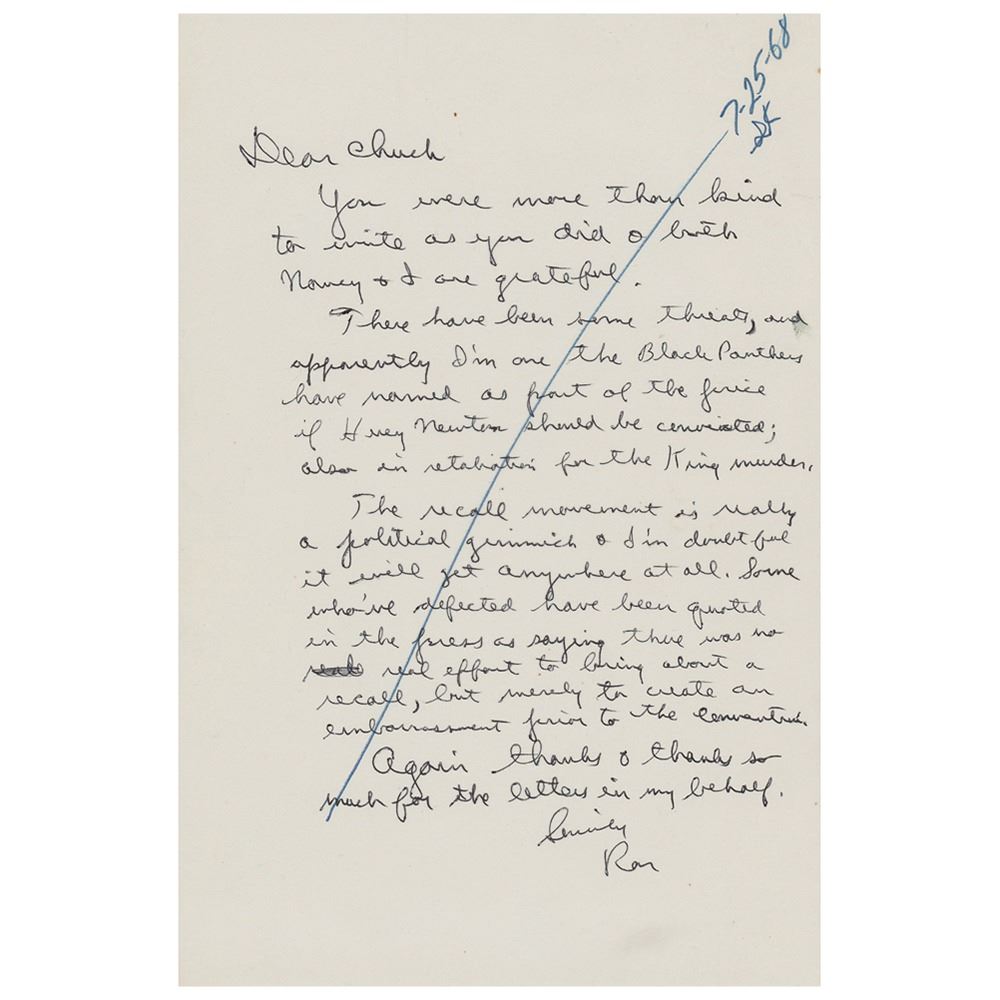 7-25-68
Dear Chuck
You were more than kind
to write as you did & both
Nancy & I are grateful.
There have been some threats, and
apparently I'm one the Black Panthers
have named as part of the price
if Huey Newton should be convicted;
also in retaliation for the King murder.
The recall movement is really
a political gimmick & I'm doubtful
it will get anywhere at all. Some
who've defected have been quoted
in the press as saying there was no
real effort to bring about a
recall, but merely to create an
embarrassment prior to the convention.
Again thanks & thanks so
much for the letters in my behalf.
Sincerely
Ron